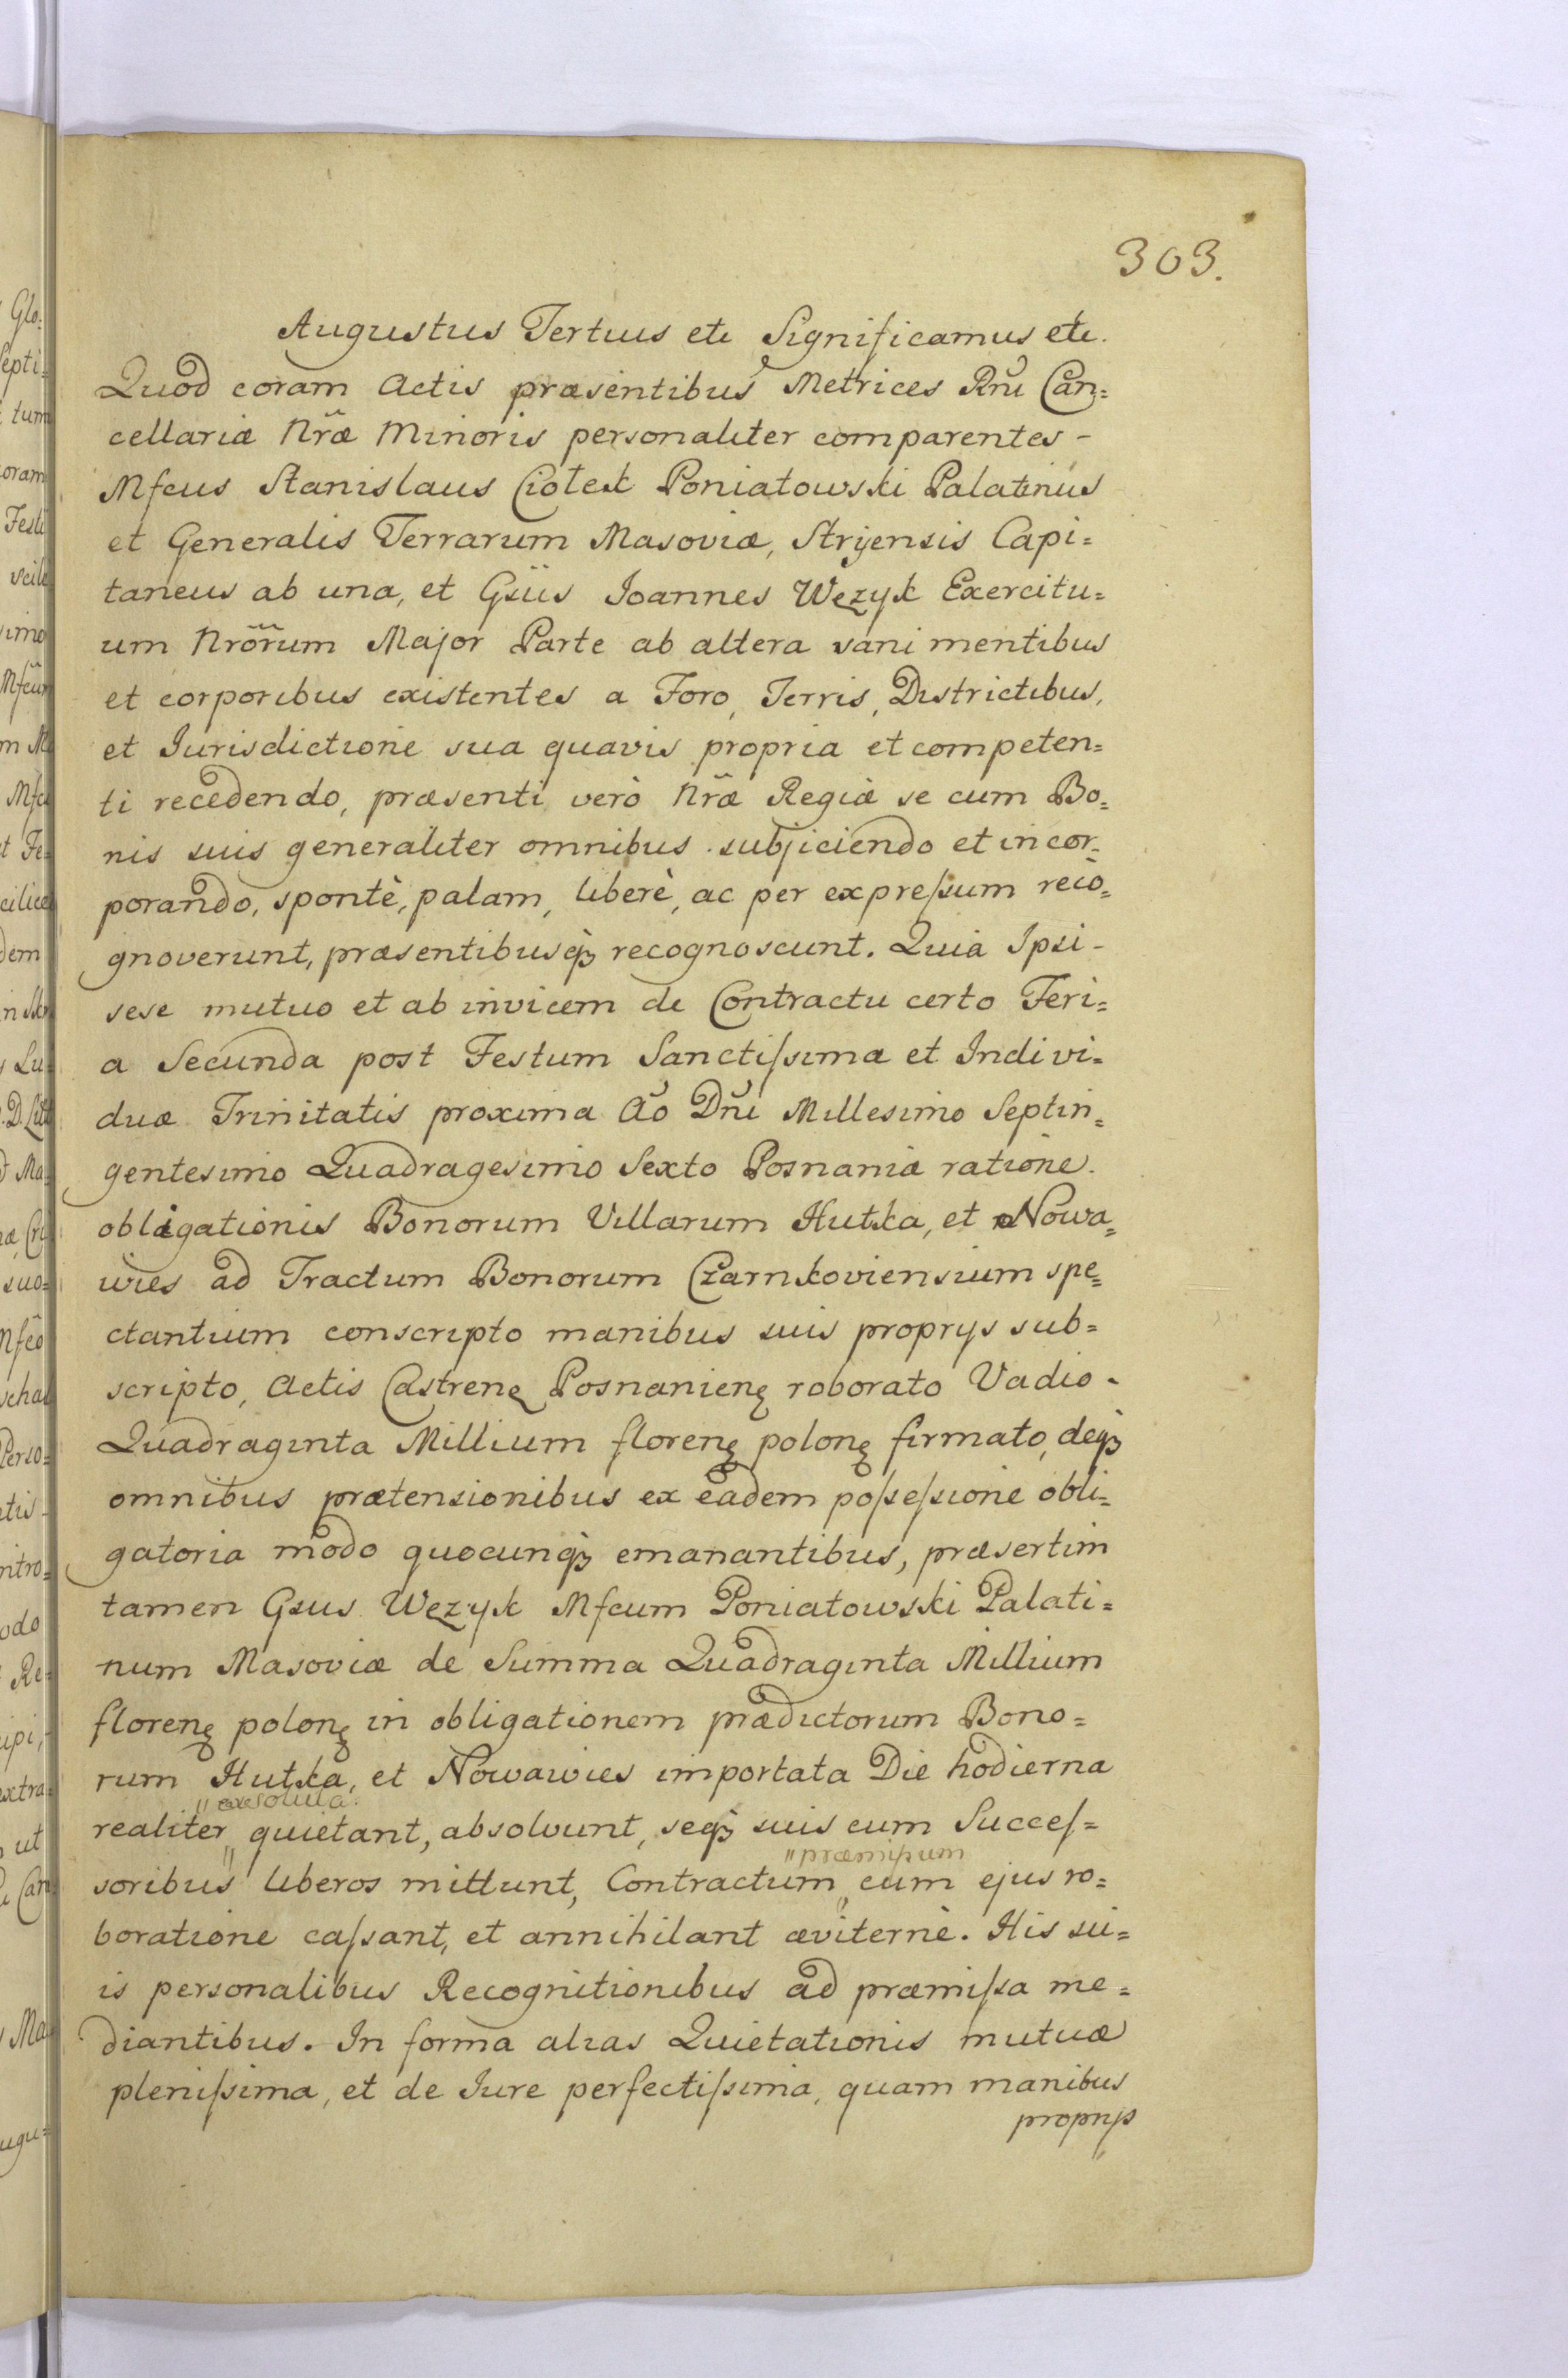 303.
Augustus Tertius etc Significamus etc.
Quod coram Actis præsentibus Metrices Rni Can=
cellariæ Nræ Minoris personaliter comparentes -
Mfcus Stanislaus Ciołek Poniatowski Palatinus
et Generalis Terrarum Masoviæ, Stryensis Capi=
taneus ab una, et Gsüs Joannes Węzyk Exercitu=
um Nrõrum Major Parte ab altera sani mentibus
et corporibus existentes a Foro, Terris, Districtibus,
et Jurisdictione sua quavis propria et competen=
ti recedendo, præsenti verò Nræ Regiæ se cum Bo=
nis suis generaliter omnibus subjiciendo et incor=
porando, spontè, palam, liberè, ac per expreſsum reco=
gnoverunt, præsentibusqꝫ recognoscunt. Quia Ipsi -
sese mutuo et ab invicem de Contractu certo Feri=
a Secunda post Festum Sanctiſsimæ et Indivi=
duæ Trinitatis proxima Ao Dni Millesimo Septin=
gentesimo Quadragesimo Sexto Posnaniæ ratione
obligationis Bonorum Villarum Hutka, et Nowa=
wies ad Tractum Bonorum Czarnkoviensium spe=
ctantium conscripto manibus suis proprys sub=
scripto, Actis Castrenę Posnanienę roborato Vadio -
Quadraginta Millium florenę polonę firmato, deqꝫ
omnibus prætensionibus ex eadem poſseſsione obli=
gatoria modo quocunqꝫ emanantibus, præsertim
tamen Gsus Węzyk Mfcum Poniatowski Palati=
num Masoviæ de Summa Quadraginta Millium
florenę polonę in obligationem prædictorum Bono=
rum Hutka, et Nowawies importata Die hodierna
" exsoluta.
realiter " quietant, absolvunt, seqꝫ suis cum Succeſ=
" præmiſsum
soribus liberos mittunt, Contractum " cum ejus ro=
boratione caſsant, et annihilant æviternè. His su=
is personalibus Recognitionibus ad præmiſsa me=
diantibus. In forma alias Quietationis mutuæ
pleniſsima, et de Jure perfectiſsima, quam manibus
proprys